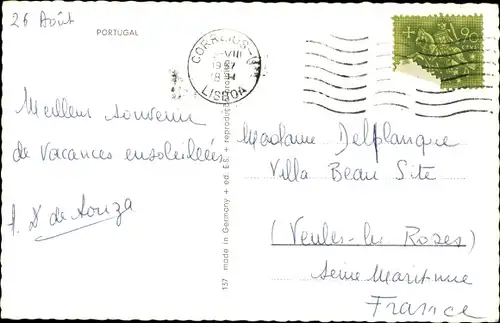 26 Août
PORTUGAL
CORREIOS
VIII
LISBOA
90
Meilleur souvenir
de vacances ensoleillées
de Souza
Madame Delplanque
Villa Beau Site
(Veules-les Roses)
Seine Maritime
France
137 made in Germany + ed. ES. + reproduction